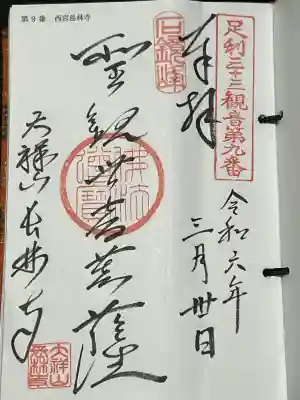 第9番 西宮長林寺
足利三十三観音第九番
奉拝
令和六年
三月卅日
聖観世音菩薩
佛法僧寶
大祥山長林寺
大祥山
長林寺